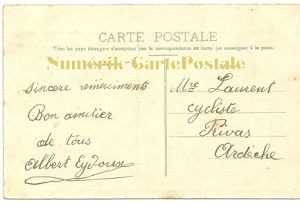 CARTE POSTALE
Tous les pays étrangers n'acceptent pas la correspondance au recto (se renseigner à la poste)
Numérik-CartePostale
Sincère remerciments
Bon amitier
de tous
Albert Eydoux
Mr Laurent
cycliste
Privas
Ardèche